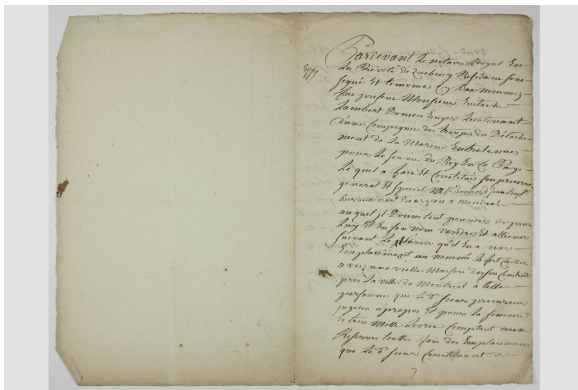 Pardevant Le notaire Royal En
La Prevosté de Quebecq Résidant sous
signé Et temoins Cy bas nommez
fut present Monsieur Eustache
Lambert Dumon Ecuyer Lieutenant
d'une Compagnie des troupes du Detache
ment de La Marine Entretenues
pour Le Service du Roy En Ce Pays
Lequel a fait Et Constitué son procureur
general Et special Jean Bapt
a Montreal
auquel Il Donne tout pouvoir de pour
Luy Et En son nom vendre Et alliener
suivant Le qu'il En a un
Emplacement au nommé Le fort
avec une vieille Maison dessus Construite
près La ville de Montreal a telle
personne que Le d. sieur procureur
jugera apropos Et pour La somme
de trois Mille Livres Comptant aux
Reserves touttes fois des Emplacemens
que Le d. sieur Constituant a